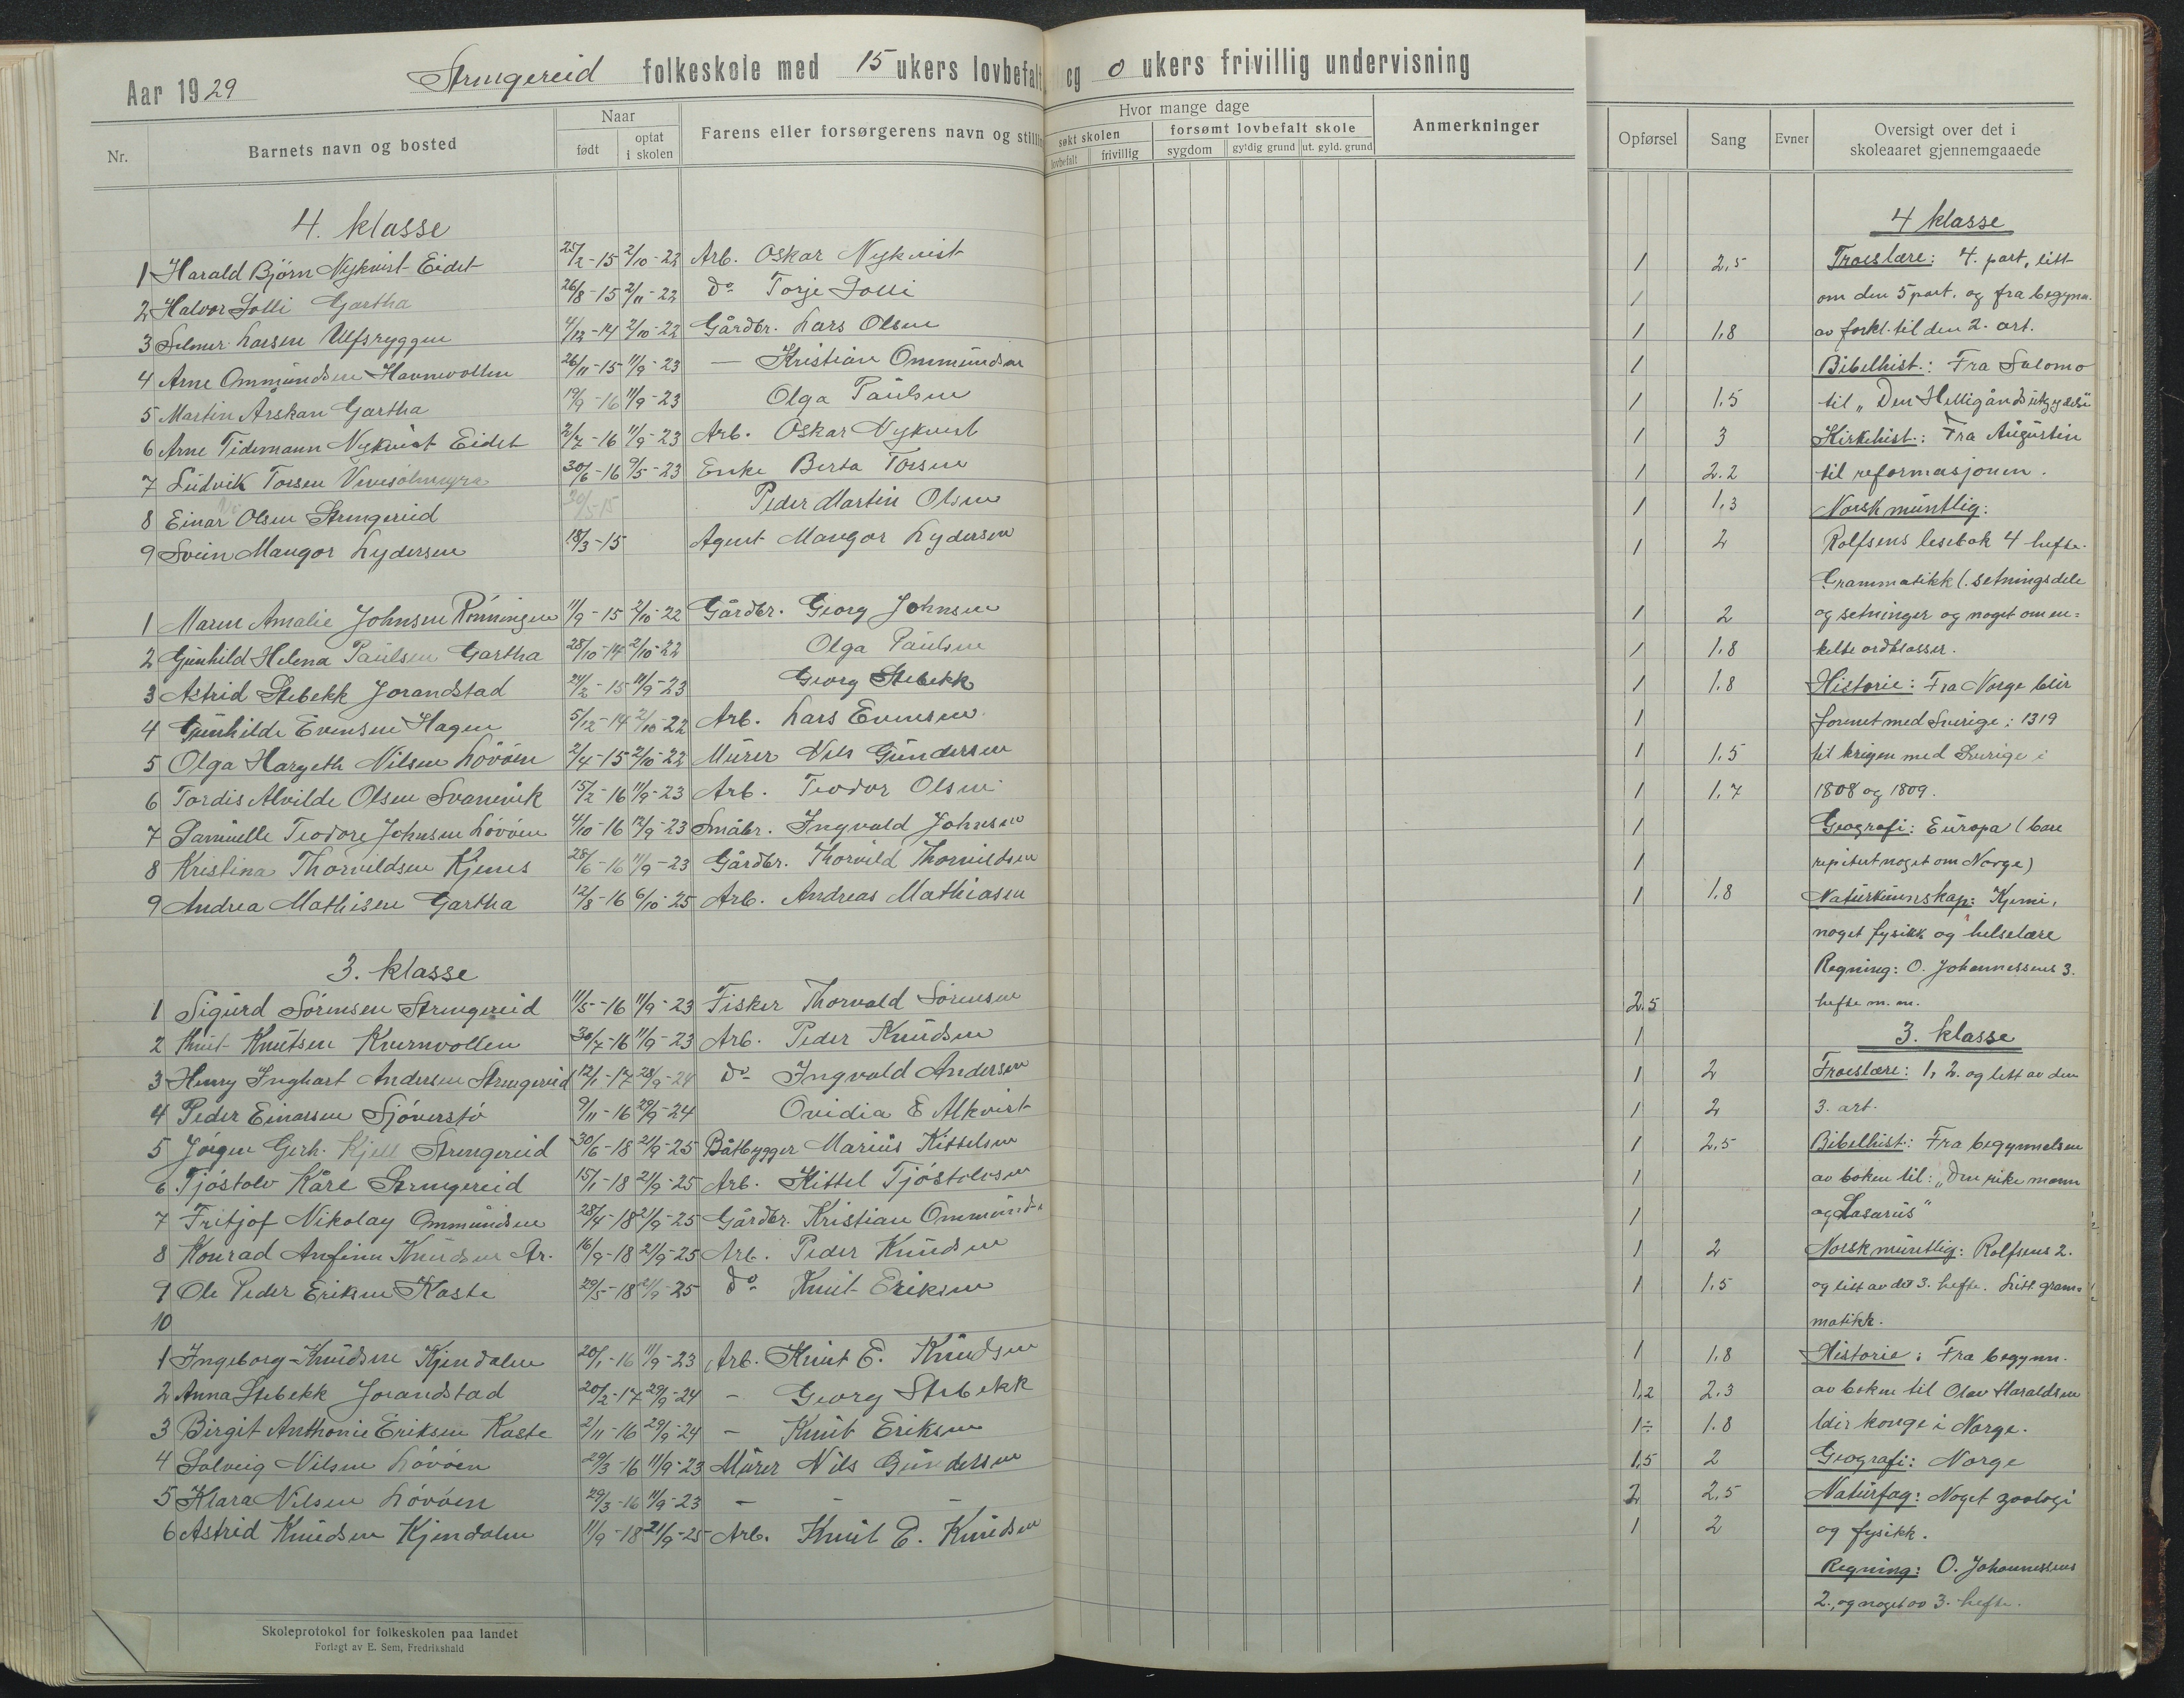 Aar 1929 Strengereid folkeskole med 15 ukers lovbefalt og 0 ukers frivillig undervisning
Nr. Barnets navn og bosted Naar født optat i skolen Farens eller forsørgerens navn og stilling
Hvor mange dage søkt skolen lovbefalt frivillig forsømt lovbefalt skole sygdom gyldig grund ut. gyld. grund Anmerkninger
Opførsel Sang Evner Oversigt over det i skoleaaret gjennemgaaede
4. klasse
1 Harald Bjørn Nykvist Eidet 25/2-15 2/10-22 Arb. Oskar Nykvist 1 2,5
2 Halvor Solli Gartha 26/8-15 2/11-22 do Torje Solli 1
3 Selmer Larsen Ulfsryggen 4/12-14 2/10-22 Gårdbr. Lars Olsen 1 1,8
4 Arne Ommundsen Havnevollen 26/11-15 11/9-23 — Kristian Ommundsen 1
5 Martin Arskan Gartha 19/9-16 11/9-23 Olga Paulsen 1 1.5
6 Arne Tidemann Nykvist Eidet 2/7-16 11/9-23 Arb. Oskar Nykvist 1 3
7 Ludvik Torsen 30/6-16 9/5-23 Enke Berta Torsen 1 2.2
8 Einar Olsen Strengereid 30/5-15 Peder Martin Olsen 1 1,3
9 Svein Mangor Lydersen 18/3-15 Agent Mangor Lydersen 1 2
1 Maren Amalie Johnsen Rönningen 11/9-15 2/10-22 Gårdbr. Georg Johnsen 1 2
2 Gunhild Helena Paulsen Gartha 28/10-14 2/10-22 Olga Paulsen 1 1.8
3 Astrid Stebekk Jorandstad 24/2-15 11/9-23 Georg Stebekk 1 1.8
4 Gunhilde Evensen Hagen 5/12-14 2/10-22 Arb. Lars Evensen 1
5 Olga Hargeth Nilsen Lövöen 2/4-15 2/10-22 Murer Nils Gundersen 1 1.5
6 Tordis Alvilde Olsen Svanevik 15/2-16 11/9-23 Arb. Teodor Olsen 1 1.7
7 Samuelle Teodore Johnsen Lövöen 4/10-16 12/9-23 Småbr. Ingvald Johnsen 1
8 Kristina Thorvildsen Kjenes 28/6-16 11/9-23 Gårdbr. Thorvild Thorvildsen 1
9 Andrea Mathisen Gartha 12/8-16 6/10-25 Arb. Andreas Mathiasen 1 1.8
3. klasse
1 Sigurd Sörensen Strengereid 11/5-16 11/9-23 Fisker Thorvald Sörensen 2.5
2 Knut Knutsen Kvernvollen 30/7-16 11/9-23 Arb. Peder Knudsen 1
3 Henry Inghart Andersen Strengereid 12/1-17 28/9-24 do Ingvald Andersen 1 2
4 Peder Einarsen Sjöverstö 9/11-16 29/9-24 Ovidia E Alkvist 1 2
5 Jörgen Gerh. Kjell Strengereid 30/6-18 21/9-25 Båtbygger Marius Kittelsen 1 2,5
6 Tjöstolv Kåre Strengereid 15/1-18 21/9-25 Arb. Kittel Tjöstolvsen 1
7 Fritjof Nikolay Ommundsen 28/4-18 21/9-25 Gårdbr. Kristian Ommunds 1
8 Konrad Anfinn Knudsen Str. 16/9-18 21/9-25 Arb. Peder Knudsen 1 2
9 Ole Peder Eriksen Kaste 29/5-18 21/9-25 do Knut Eriksen 1 1,5
10
1 Ingeborg Knudsen Kjendalen 20/1-16 11/9-23 Arb. Knut E. Knudsen 1 1,8
2 Anna Stebekk Jorandstad 20/2-17 29/9-24 - Georg Stebekk 1,2 2,3
3 Birgit Anthonie Eriksen Kaste 2/11-16 29/9-24 - Knut Eriksen 1÷ 1.8
4 Solveig Nilsen Lövöen 29/3-16 11/9-23 Murer Nils Gundersen 1,5 2
5 Klara Nilsen Lövöen 29/3-16 11/9-23 - - - 2 2,5
6 Astrid Knudsen Kjendalen 11/9-18 21/9-25 Arb. Knut E. Knudsen 1 2
Skoleprotokol for folkeskolen paa landet
Forlagt av E. Sem, Fredrikshald
4 klasse
Troeslære: 4. part, litt
om den 5 part. og fra begynn.
av forkl. til den 2. art.
Bibelhist.: Fra Salomo
til „Den Helligånds utgydelse
Kirkehist.: Fra Augustin
til reformasjonen.
Norsk muntlig:
Rolfsens lesebok 4 hefte.
Grammatikk (setningsdele
og setninger og noget om en=
kelte ordklasser.
Historie: Fra Norge blir
forenet med Sverige i 1319
til krigen med Sverige i
1808 og 1809.
Geografi: Europa (bare
repitert noget om Norge)
Naturkunnskap: Kjemi,
noget fysikk og helselære
Regning: O. Johannessens 3.
hefte m. m.
3. klasse
Troeslære: 1, 2. og litt av den
3. art.
Bibelhist.: Fra begynnelsen
av boken til: „Den rike mann
og Lasarus"
Norsk muntlig: Rolfsens 2.
og litt av det 3. hefte. Litt gram=
matikk.
Historie: Fra begynn.
av boken til Olav Haraldsen
blir konge i Norge.
Geografi: Norge
Naturfag: Noget zoologi
og fysikk.
Regning: O. Johannessens
2., og noget av 3. hefte.